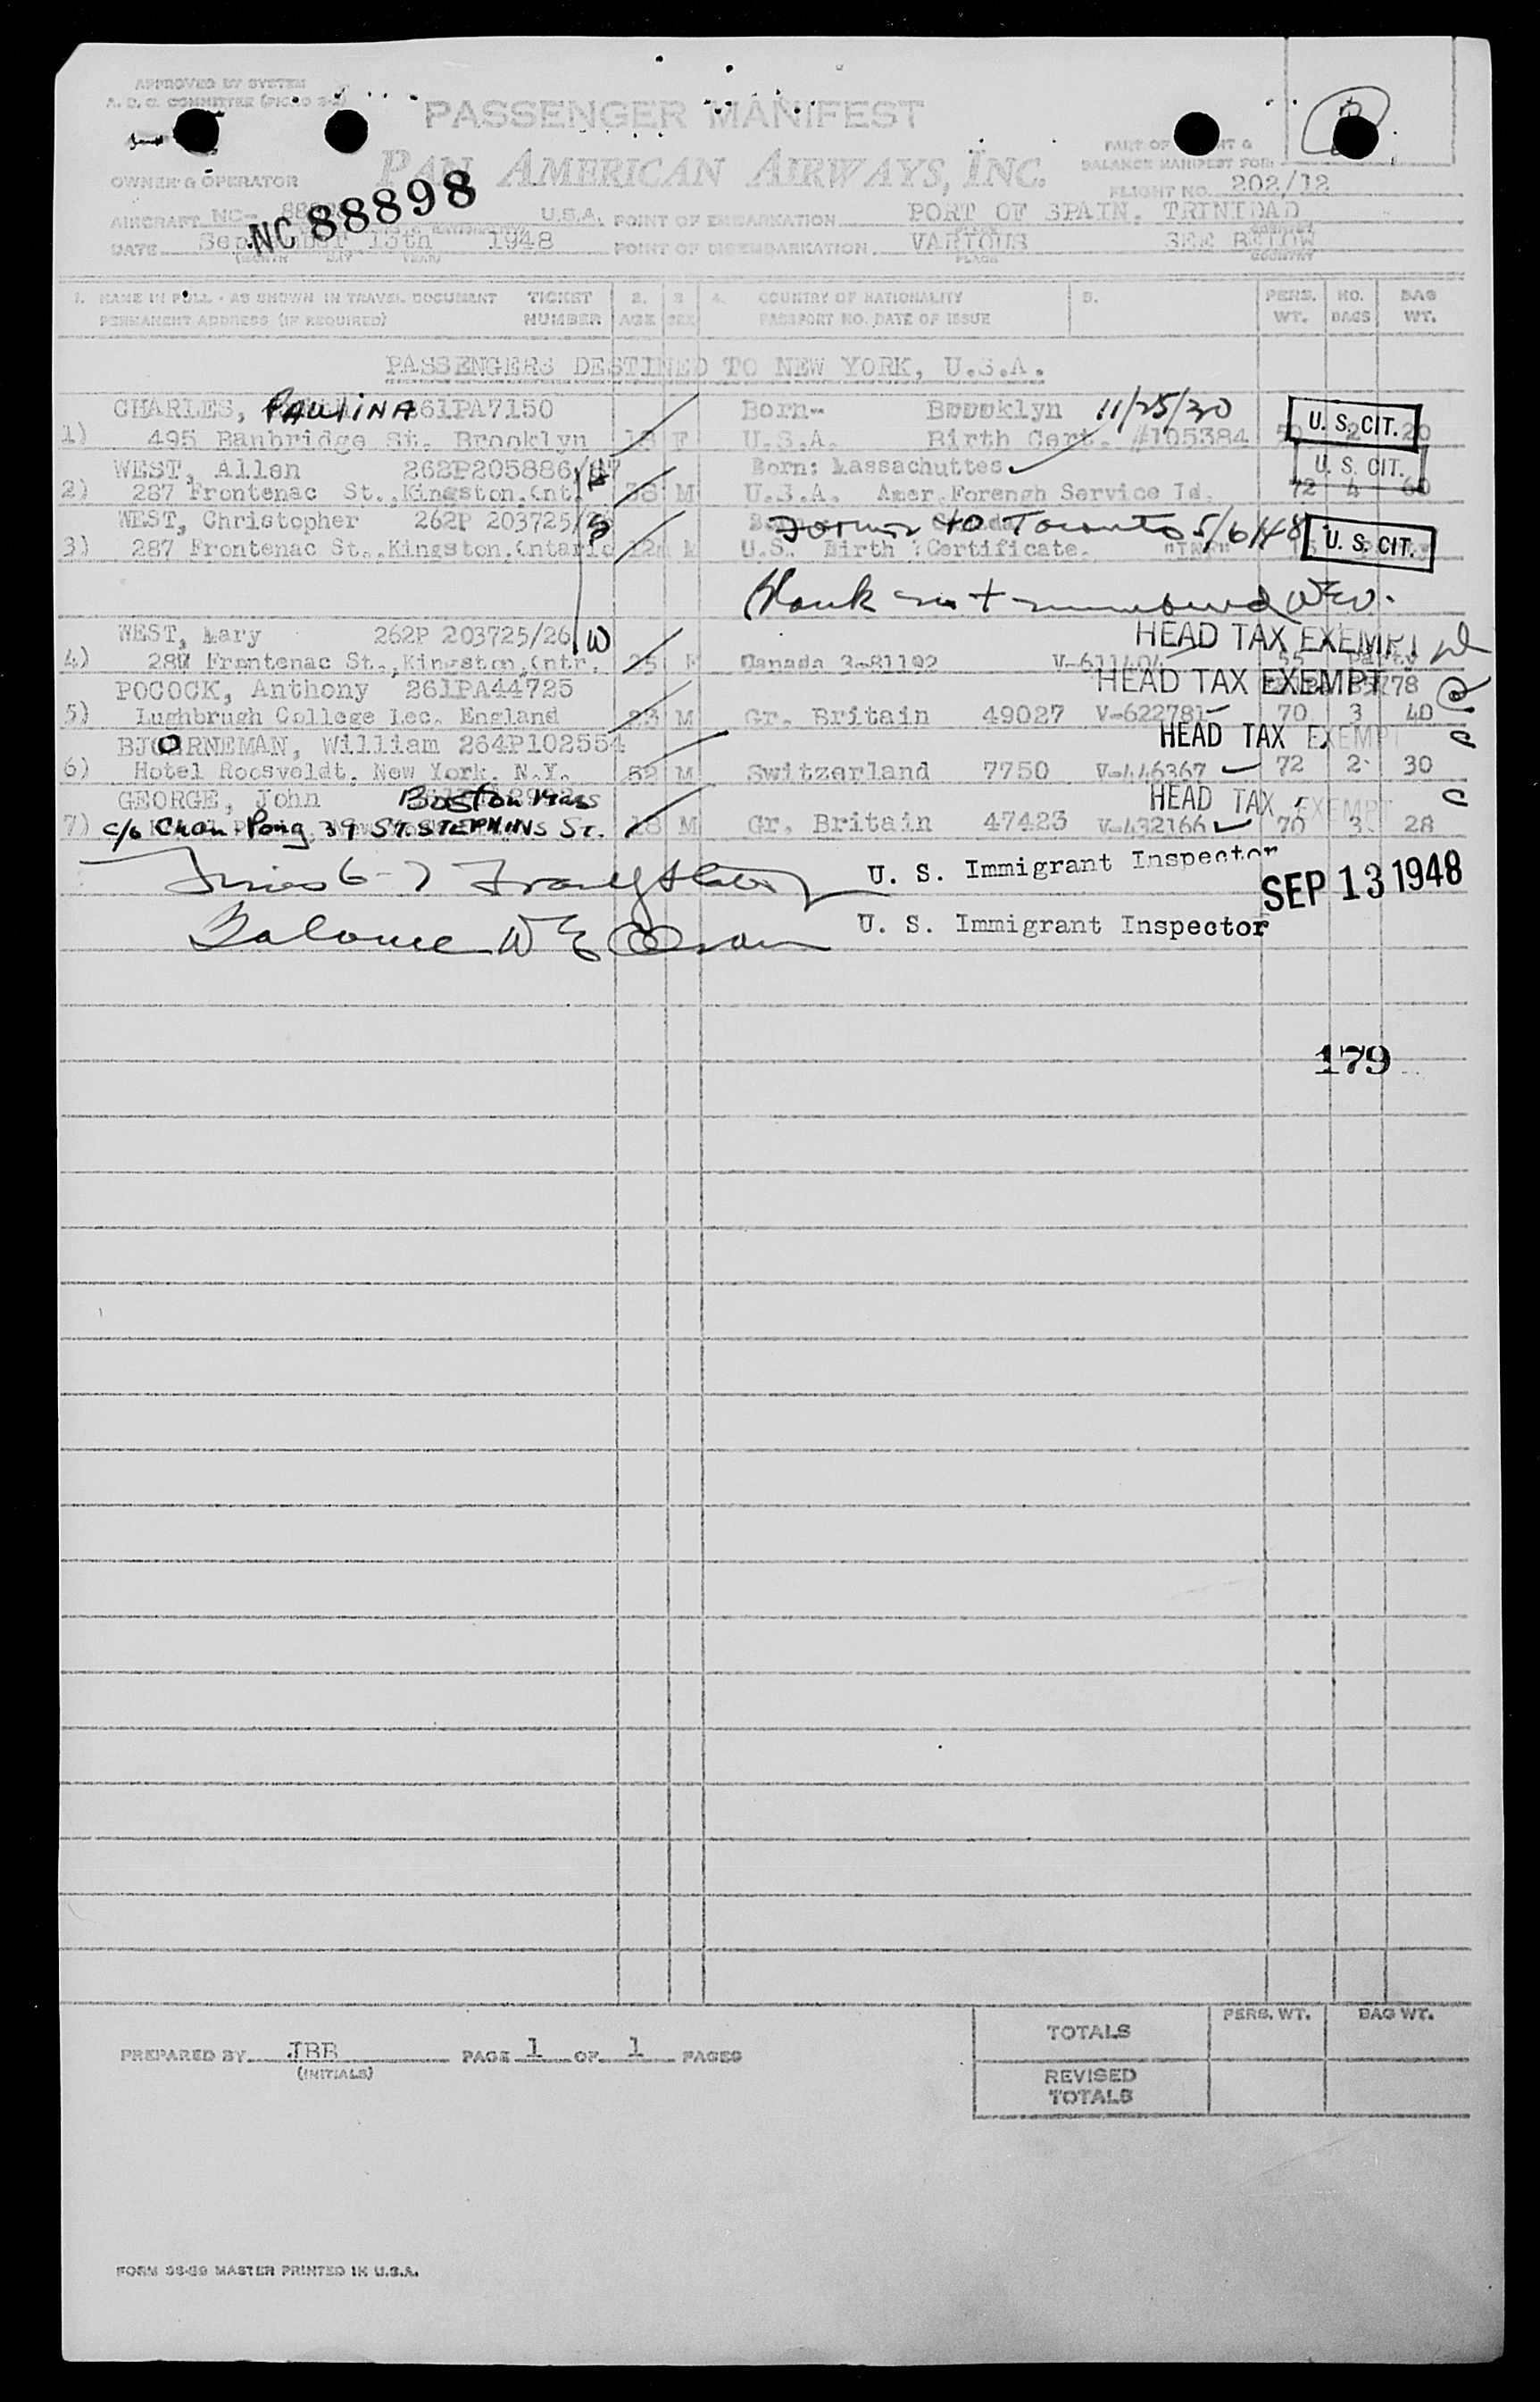 APPROVED BY SYSTEM
A. D. C. COMMITTEE
PASSENGER MANIFEST
PAN AMERICAN AIRWAYS, INC.
PART OF
BALANCE MANIFEST FOR:
OWNER & OPERATOR
FLIGHT NO. 202/12
AIRCRAFT NC- NC 88898 U.S.A. POINT OF EMBARKATION PORT OF SPAIN. TRINIDAD
DATE September 13th 1948 POINT OF DISEMBARKATION VARIOUS SEE BELOW
(MONTH DAY YEAR) PLACE COUNTRY
1. NAME IN FULL - AS SHOWN IN TRAVEL DOCUMENT TICKET 2. 3 4. COUNTRY OF NATIONALITY 5. PERS. NO. BAG
PERMANENT ADDRESS (IF REQUIRED) NUMBER AGE SEX PASSPORT NO. DATE OF ISSUE WT. BAGS WT.
PASSENGERS DESTINED TO NEW YORK, U.S.A.
CHARLES, PAULINA 261PA7150 Born- 11/25/30
1) 495 Banbridge St. Brooklyn 18 F U.S.A. Birth Cert. #105384 50 2 20 U. S. CIT.
WEST, Allen 262P205886/ Born: Massachuttes U. S. CIT.
2) 287 Frontenac St.,Kingston.Ont. 38 M U.S.A. Amer.Forengh Service Id. 72 4 60
WEST, Christopher 262P 203725/ to Toronto 5/6/48
3) 287 Frontenac St.,Kingston.Ontario M U.S. Birth Certificate. U. S. CIT.
WEST, Mary 262P 203725/26 W HEAD TAX EXEMPT
4) Frontenac St.,Kingston,Ontr. 25 F Canada 3-81192 V-611404 55 Party
POCOCK, Anthony 261PA44725 HEAD TAX EXEMPT
5) Lughbrugh College Lec. England 23 M Gr. Britain 49027 V-622781 70 3 40
BJORNEMAN, William 264P102554 HEAD TAX EXEMPT
6) Hotel Roosveldt. New York. N.Y. 52 M Switzerland 7750 V-446367 72 2 30
GEORGE, John Boston Mass HEAD TAX EXEMPT
7) c/o Chan Pong 39 ST. STEPHINS ST. 18 M Gr. Britain 47423 V-432166 70 3 28
U. S. Immigrant Inspector
SEP 13 1948
U. S. Immigrant Inspector
179
PERS. WT. BAG WT.
TOTALS
PREPARED BY JBB PAGE 1 OF 1 PAGES
(INITIALS)
REVISED
TOTALS
FORM MASTER PRINTED IN U.S.A.